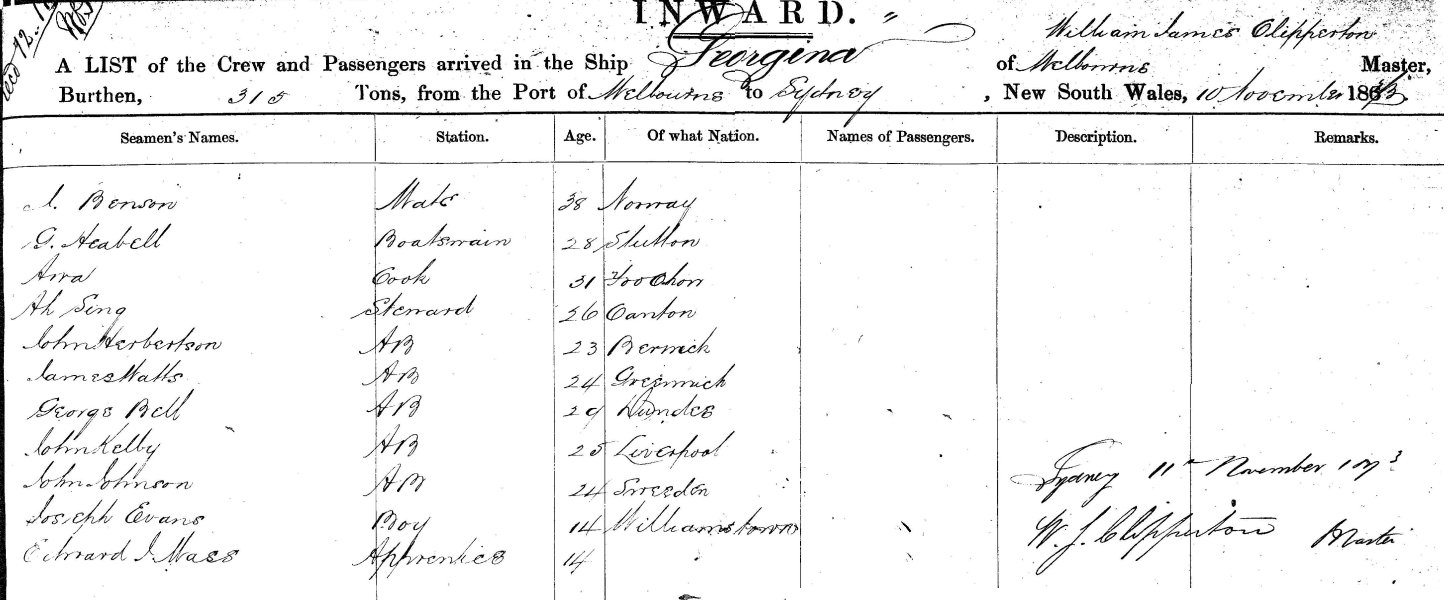 INWARD.
William James Clipperton
A LIST of the Crew and Passengers arrived in the Ship Georgina of Melbourne Master,
Burthen, 315 Tons, from the Port of Melbourne to Sydney, New South Wales, 10 November 186
Seamen's Names. Station. Age. Of what Nation. Names of Passengers. Description. Remarks.
I. Benson Mate 38 Norway
G. Heabell Boatswain 28 Stutton
Awa Cook 31 Foo Chow
Ah Sing Steward 26 Canton
John Herbertson AB 23 Berwick
James Watts AB 24 Greenwich
George Bell AB 29 Dundee
John Kelby AB 25 Liverpool
John Johnson AB 24 Sweeden
Sydney 11th November 1873
Joseph Evans Boy 14 Williamstown
W. J. Clipperton Master
Edward J. Wass Apprentice 14